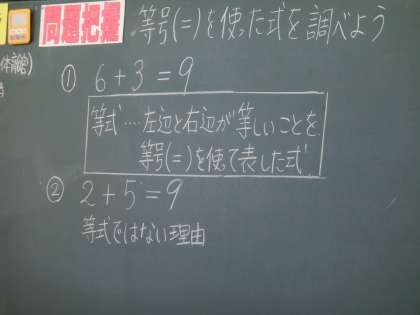 問題把握
等号(=)を使った式を調べよう
体育館)
① 6+3=9
等式…左辺と右辺が等しいことを
等号(=)を使て表した式
② 2+5=9
等式ではない理由